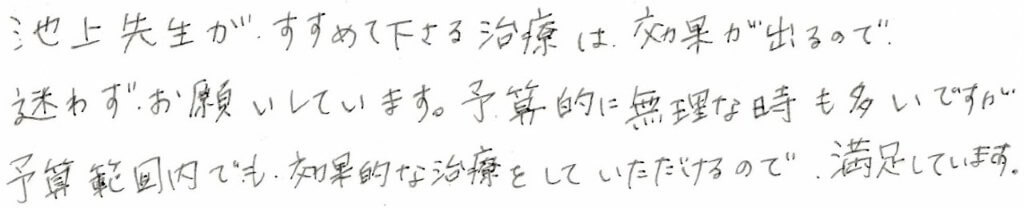 池上先生が、すすめて下さる治療は、効果が出るので、
迷わず、お願いしています。予算的に無理な時も多いですが
予算範囲内でも、効果的な治療をしていただけるので、満足しています。